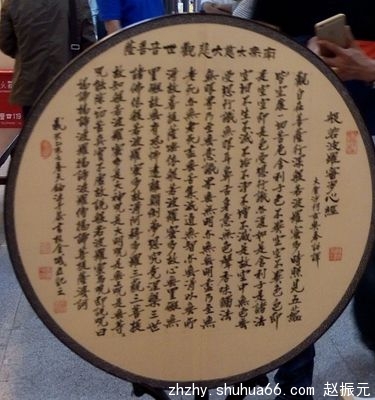 南無大慈大悲觀世音菩薩
般若波羅蜜多心經
大唐沙門玄奘奉詔譯
觀自在菩薩行深般若波羅蜜多時照見五蘊
皆空度一切苦厄舍利子色不異空空不異色色即
是空空即是色受想行識亦復如是舍利子是諸法
空相不生不滅不垢不淨不增不減是故空中無色無
受想行識無眼耳鼻舌身意無色聲香味觸法
無眼界乃至無意識界無無明亦無無明盡乃至無
老死亦無老死盡無苦集滅道無智亦無得以無所
得故菩提薩埵依般若波羅蜜多故心無罣礙無
罣礙故無有恐怖遠離顛倒夢想究竟涅槃三世
諸佛依般若波羅蜜多故得阿耨多羅三藐三菩提
故知般若波羅蜜多是大神咒是大明咒是無上咒是無等等
咒能除一切苦真實不虛故說般若波羅蜜多咒即說咒曰
揭諦揭諦波羅揭諦波羅僧揭諦菩提薩婆訶
zhzhy.shuhua66.com 赵振元